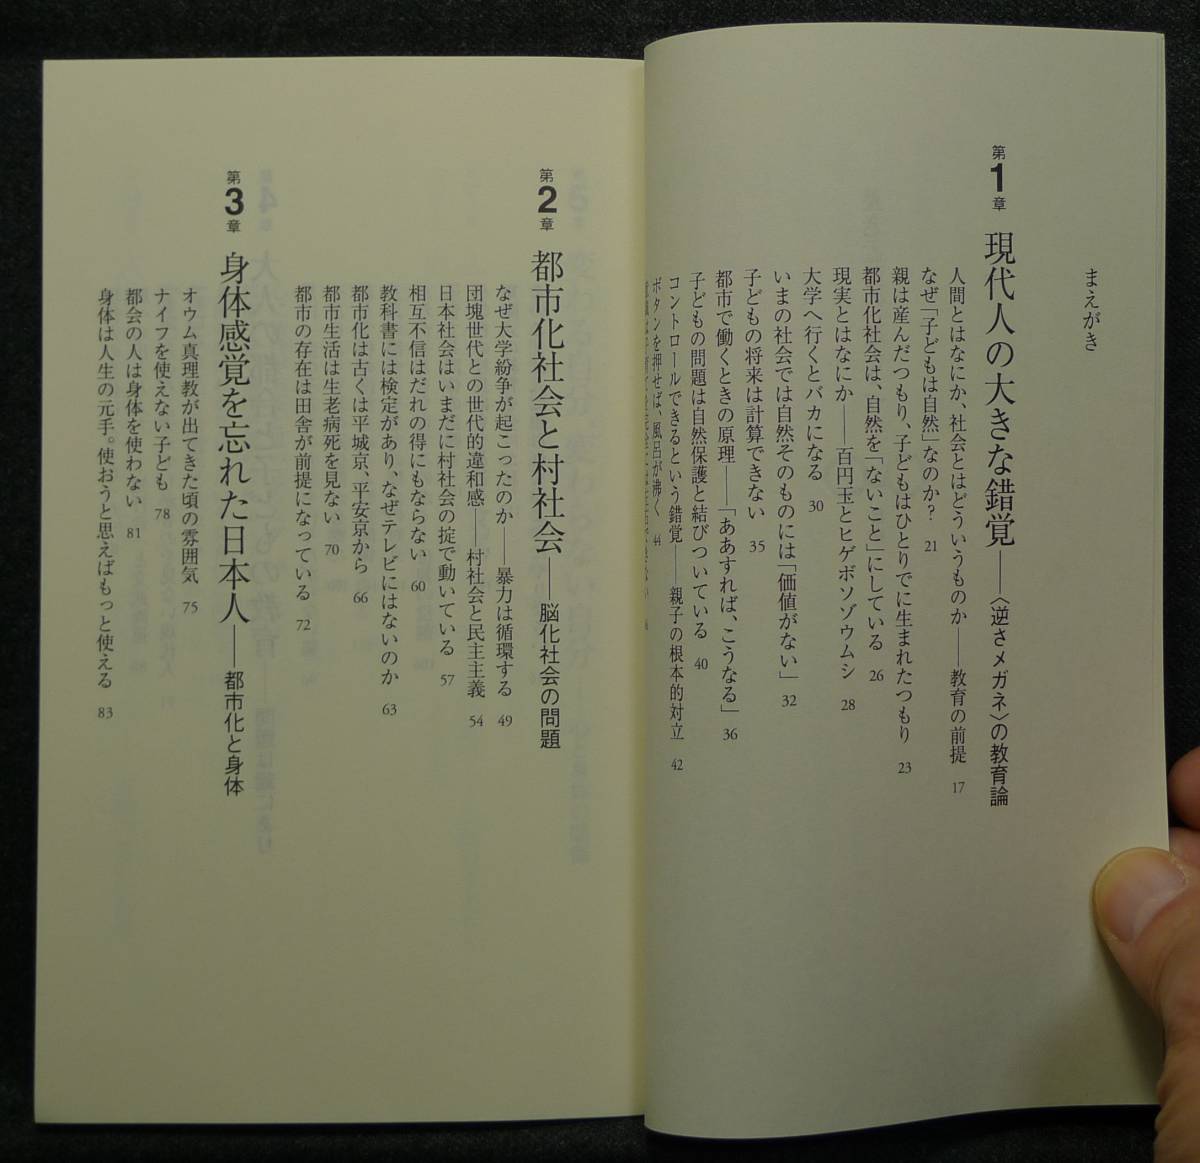 まえがき
第1章 現代人の大きな錯覚──〈逆さメガネ〉の教育論
人間とはなにか、社会とはどういうものか──教育の前提 17
なぜ「子どもは自然」なのか? 21
親は産んだつもり、子どもはひとりでに生まれたつもり 23
都市化社会は、自然を「ないこと」にしている 26
現実とはなにか──百円玉とヒゲボソゾウムシ 28
大学へ行くとバカになる 30
いまの社会では自然そのものには「価値がない」 32
子どもの将来は計算できない 35
都市で働くときの原理──「ああすれば、こうなる」 36
子どもの問題は自然保護と結びついている 40
コントロールできるという錯覚──親子の根本的対立 42
ボタンを押せば、風呂が沸く 44
第2章 都市化社会と村社会──脳化社会の問題
なぜ大学紛争が起こったのか──暴力は循環する 49
団塊世代との世代的違和感──村社会と民主主義 54
日本社会はいまだに村社会の掟で動いている 57
相互不信はだれの得にもならない 60
教科書には検定があり、なぜテレビにはないのか 63
都市化は古くは平城京、平安京から 66
都市生活は生老病死を見ない 70
都市の存在は田舎が前提になっている 72
第3章 身体感覚を忘れた日本人──都市化と身体
オウム真理教が出てきた頃の雰囲気 75
ナイフを使えない子ども 78
都会の人は身体を使わない 81
身体は人生の元手。使おうと思えばもっと使える 83